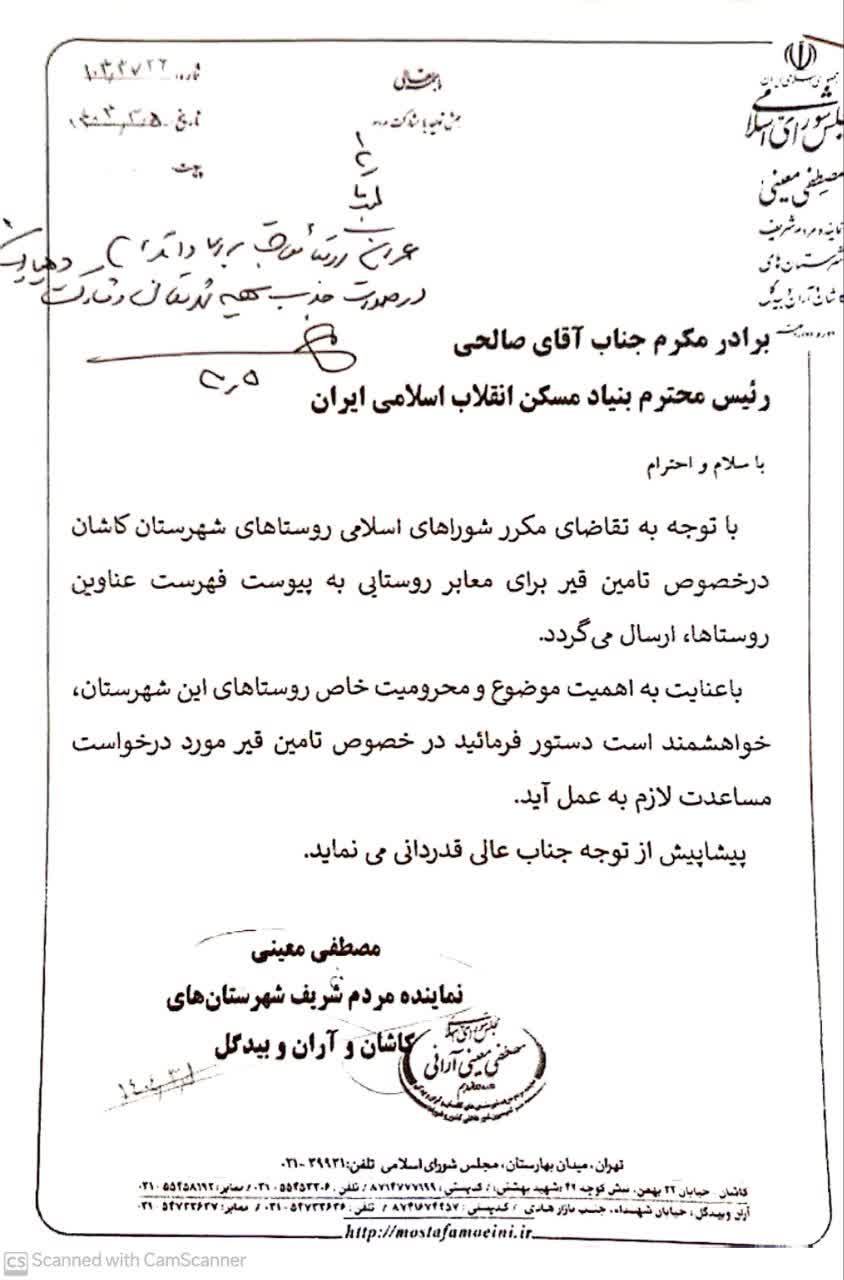 جمهوری اسلامی ایران
مجلس شورای اسلامی
مصطفی معینی
نماینده مردم شریف
شهرستان‌های
کاشان و آران و بیدگل
باسمه تعالی
شماره:
تاریخ:
پیوست:
برادر مکرم جناب آقای صالحی
رئیس محترم بنیاد مسکن انقلاب اسلامی ایران
با سلام و احترام
با توجه به تقاضای مکرر شوراهای اسلامی روستاهای شهرستان کاشان
درخصوص تامین قیر برای معابر روستایی به پیوست فهرست عناوین
روستاها، ارسال می‌گردد.
باعنایت به اهمیت موضوع و محرومیت خاص روستاهای این شهرستان،
خواهشمند است دستور فرمائید در خصوص تامین قیر مورد درخواست
مساعدت لازم به عمل آید.
پیشاپیش از توجه جناب عالی قدردانی می نماید.
مصطفی معینی
نماینده مردم شریف شهرستان‌های
کاشان و آران و بیدگل
مجلس شورای اسلامی
مصطفی معینی آرانی
تهران، میدان بهارستان، مجلس شورای اسلامی تلفن: ۳۹۹۳۱-۰۲۱
کاشان - خیابان ۲۲ بهمن، نبش کوچه ۴۲ (شهید بهشتی) / کدپستی: ۸۷۱۴۷۷۷۱۹۹ / تلفن: ۵۵۴۵۳۲۰۶-۰۳۱ / نمابر: ۵۵۴۵۸۱۹۲-۰۳۱
آران و بیدگل، خیابان شهداء، جنب بازار هادی / کدپستی: ۸۷۴۱۶۷۴۲۵۷ / تلفن: ۵۴۷۳۳۶۳۶-۰۳۱ / نمابر: ۵۴۷۳۳۶۳۷-۰۳۱
http://mostafamoeini.ir
CS Scanned with CamScanner